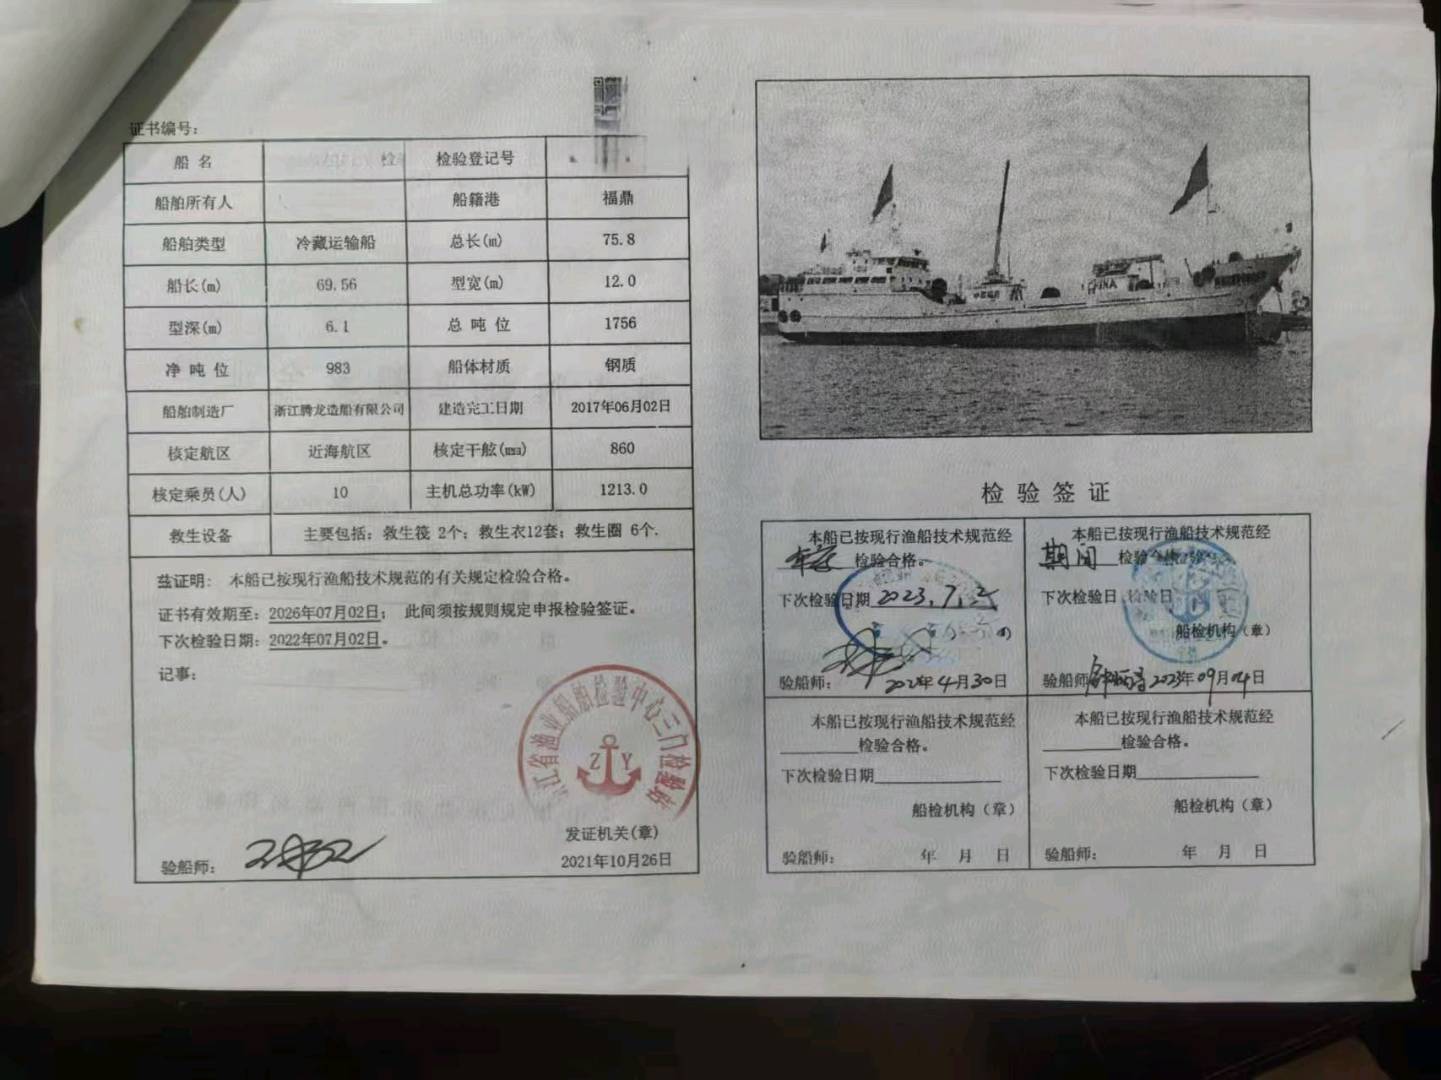 证书编号：
船 名 检 检验登记号
船舶所有人 船籍港 福鼎
船舶类型 冷藏运输船 总长(m) 75.8
船长(m) 69.56 型宽(m) 12.0
型深(m) 6.1 总 吨 位 1756
净 吨 位 983 船体材质 钢质
船舶制造厂 浙江腾龙造船有限公司 建造完工日期 2017年06月02日
核定航区 近海航区 核定干舷(mm) 860
核定乘员(人) 10 主机总功率(kW) 1213.0
救生设备 主要包括：救生筏 2个；救生衣12套；救生圈 6个.
兹证明： 本船已按现行渔船技术规范的有关规定检验合格。
证书有效期至：2026年07月02日； 此间须按规则规定申报检验签证。
下次检验日期：2022年07月02日。
记事：
江省渔业船舶检验中心三门检验站
Z Y
发证机关(章)
验船师：
2021年10月26日
CHINA
检 验 签 证
本船已按现行渔船技术规范经
检验合格。
下次检验日期 2023.7.2
验船师： 年4月30日
本船已按现行渔船技术规范经
期间 检验合格。
下次检验日
船检机构(章)
验船师 2023年09月04日
本船已按现行渔船技术规范经
________检验合格。
下次检验日期____________
船检机构(章)
验船师： 年 月 日
本船已按现行渔船技术规范经
________检验合格。
下次检验日期____________
船检机构(章)
验船师： 年 月 日